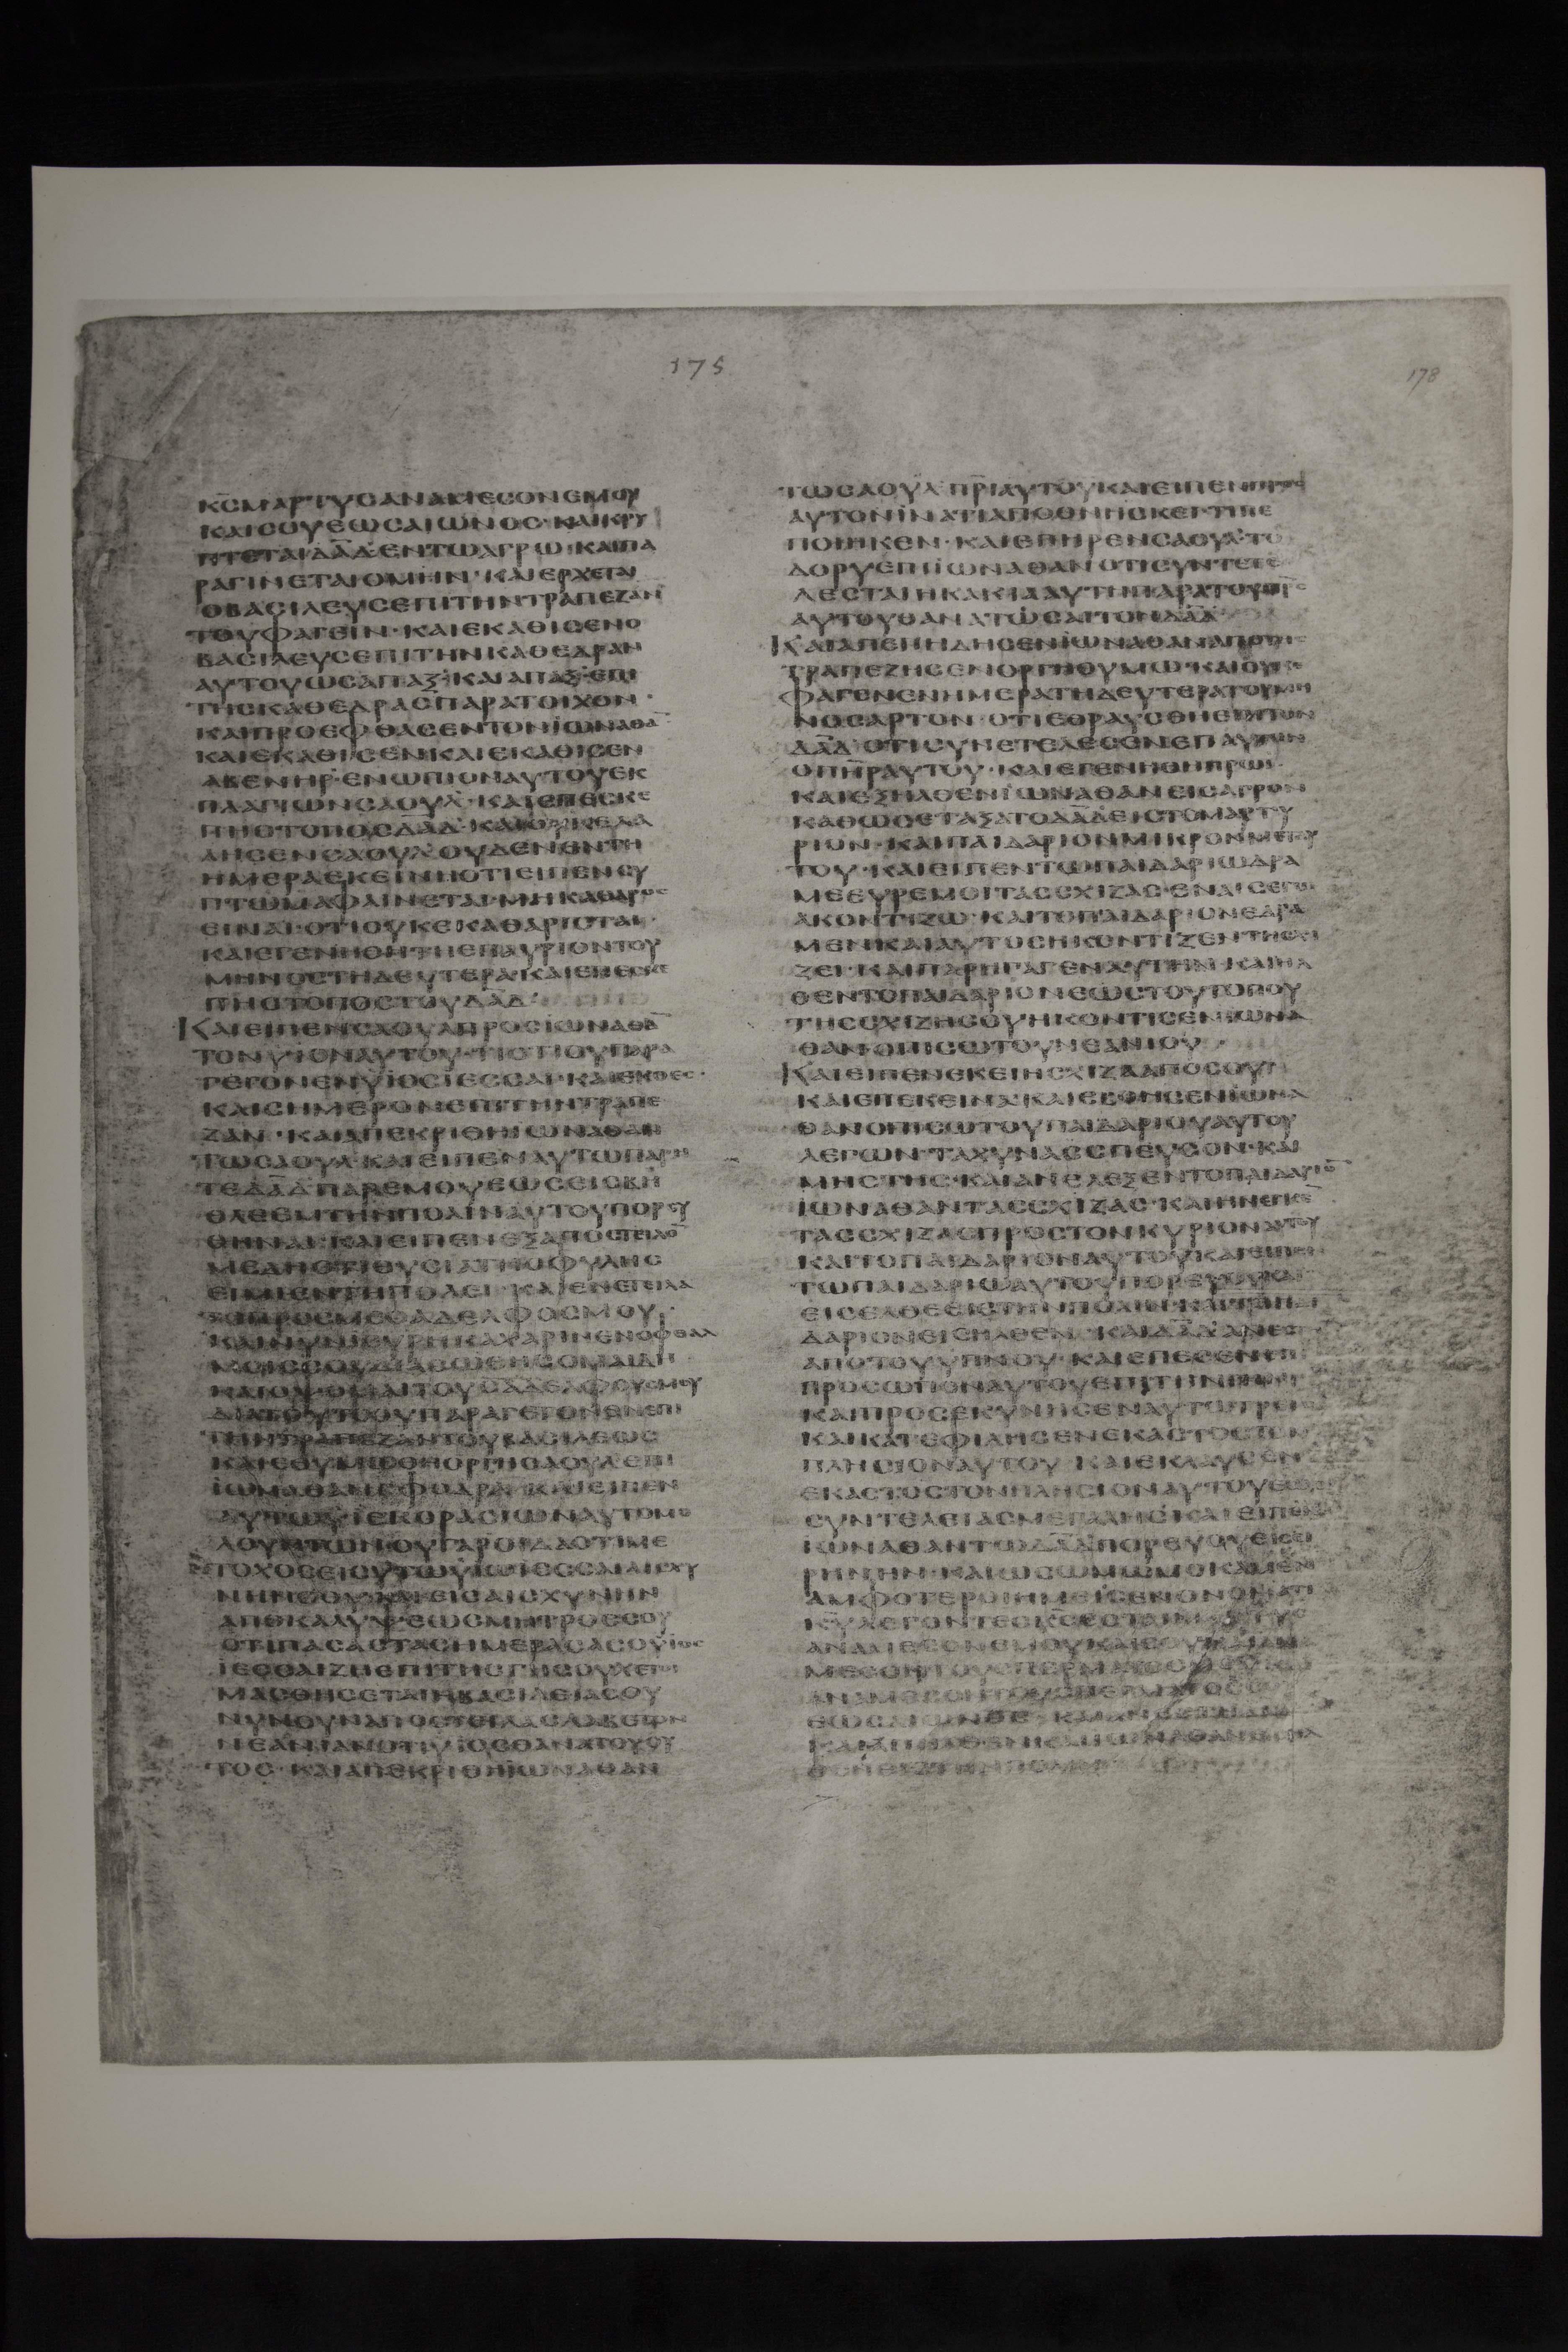 175
178
ΚϹΜΑΡΤΥϹΑΝΑΜΕϹΟΝΕΜΟΥ
ΚΑΙϹΟΥΕΩϹΑΙΩΝΟϹ·ΚΑΙΚΡΥ
ΠΤΕΤΑΙΔΑΔ·ΕΝΤΩΑΓΡΩ·ΚΑΙΠΑ
ΡΑΓΙΝΕΤΑΙΟΜΗΝ·ΚΑΙΕΡΧΕΤΑΙ
ΟΒΑϹΙΛΕΥϹΕΠΙΤΗΝΤΡΑΠΕΖΑΝ
ΤΟΥΦΑΓΕΙΝ·ΚΑΙΕΚΑΘΙϹΕΝΟ
ΒΑϹΙΛΕΥϹΕΠΙΤΗΝΚΑΘΕΔΡΑΝ
ΑΥΤΟΥΩϹΑΠΑΞ·ΚΑΙΑΠΑΞ·ΕΠΙ
ΤΗϹΚΑΘΕΔΡΑϹΠΑΡΑΤΟΙΧΟΝ·
ΚΑΙΠΡΟΕΦΘΑϹΕΝΤΟΝΙΩΝΑΘΑ
ΚΑΙΕΚΑΘΙϹΕΝΚΑΙΕΚΑΘΙϹΕΝ
ΑΒΕΝΗΡ·ΕΝΩΠΙΟΝΑΥΤΟΥΕΚ
ΠΛΑΓΙΩΝϹΑΟΥΛ·ΚΑΙΕΠΕϹΚΕ
ΠΗΟΤΟΠΟϹΔΑΔ·ΚΑΙΟΥΚΕΛΑ
ΛΗϹΕΝϹΑΟΥΛΟΥΔΕΝΕΝΤΗ
ΗΜΕΡΑΕΚΕΙΝΗΟΤΙΕΙΠΕΝϹΥ
ΠΤΩΜΑΦΑΙΝΕΤΑΙ·ΜΗΚΑΘΑΡΟϹ
ΕΙΝΑΙ·ΟΤΙΟΥΚΕΚΑΘΑΡΙϹΤΑΙ·
ΚΑΙΕΓΕΝΗΘΗΤΗΕΠΑΥΡΙΟΝΤΟΥ
ΜΗΝΟϹΤΗΔΕΥΤΕΡΑ·ΚΑΙΕΠΕϹΚΕ
ΠΗΟΤΟΠΟϹΤΟΥΔΑΔ·
ΚΑΙΕΙΠΕΝϹΑΟΥΛΠΡΟϹΙΩΝΑΘΑ
ΤΟΝΥΙΟΝΑΥΤΟΥ·ΤΙΟΤΙΟΥΠΑΡΑ
ΓΕΓΟΝΕΝΥΙΟϹΙΕϹϹΑΙ·ΚΑΙΕΚΘΕϹ·
ΚΑΙϹΗΜΕΡΟΝΕΠΙΤΗΝΤΡΑΠΕ
ΖΑΝ·ΚΑΙΑΠΕΚΡΙΘΗΙΩΝΑΘΑΝ
ΤΩϹΑΟΥΛ·ΚΑΙΕΙΠΕΝΑΥΤΩΠΑΡΗ
ΤΕΔΑΔΠΑΡΕΜΟΥΕΩϹΕΙϹΒΗ
ΘΛΕΕΜΤΗΝΠΟΛΙΝΑΥΤΟΥΠΟΡΕΥ
ΘΗΝΑΙ·ΚΑΙΕΙΠΕΝΕΞΑΠΟϹΤΕΙΛΟ
ΜΕΔΗΟΤΙΘΥϹΙΑΤΗϹΦΥΛΗϹ
ΕΙΜΙΕΝΤΗΠΟΛΕΙ·ΚΑΙΕΝΕΤΕΙΛΑ
ΤΟΠΡΟϹΜΕΟΑΔΕΛΦΟϹΜΟΥ·
ΚΑΙΝΥΝΙΕΥΡΗΚΑΧΑΡΙΝΕΝΟΦΘΑΛ
ΜΟΙϹϹΟΥΔΙΑϹΩΘΗϹΟΜΑΙΔΗ
ΚΑΙΟΨΟΜΑΙΤΟΥϹΑΔΕΛΦΟΥϹΜΟΥ
ΔΙΑΤΟΥΤΟΟΥΠΑΡΑΓΕΓΟΝΕΝΕΠΙ
ΤΗΝΤΡΑΠΕΖΑΝΤΟΥΒΑϹΙΛΕΩϹ
ΚΑΙΕΘΥΜΩΘΗΟΡΓΗϹΑΟΥΛΕΠΙ
ΙΩΝΑΘΑΝϹΦΟΔΡΑ·ΚΑΙΕΙΠΕΝ
ΑΥΤΩΥΙΕΚΟΡΑϹΙΩΝΑΥΤΟΜΟ
ΛΟΥΝΤΩΝ·ΟΥΓΑΡΟΙΔΑΟΤΙΜΕ
ΤΟΧΟϹΕΙϹΥΤΩΥΙΩΙΕϹϹΑΙΑΙϹΧΥ
ΝΗΝϹΟΥΚΑΙΕΙϹΑΙϹΧΥΝΗΝ
ΑΠΟΚΑΛΥΨΕΩϹΜΗΤΡΟϹϹΟΥ
ΟΤΙΠΑϹΑϹΤΑϹΗΜΕΡΑϹΑϹΟΥΙΟϹ
ΙΕϹϹΑΙΖΗΕΠΙΤΗϹΓΗϹΟΥΧΕΤΟΙ
ΜΑϹΘΗϹΕΤΑΙΗΒΑϹΙΛΕΙΑϹΟΥ
ΝΥΝΟΥΝΑΠΟϹΤΕΙΛΑϹΛΑΒΕΤΟΝ
ΝΕΑΝΙΑΝΟΤΙΥΙΟϹΘΑΝΑΤΟΥΟΥ
ΤΟϹ·ΚΑΙΑΠΕΚΡΙΘΗΙΩΝΑΘΑΝ
ΤΩϹΑΟΥΛΠΡΙΑΥΤΟΥΚΑΙΕΙΠΕΝΠΡΟϹ
ΑΥΤΟΝΙΝΑΤΙΑΠΟΘΝΗϹΚΕΙ·ΤΙΠΕ
ΠΟΙΗΚΕΝ·ΚΑΙΕΠΗΡΕΝϹΑΟΥΛ·ΤΟ
ΔΟΡΥΕΠΙΙΩΝΑΘΑΝΟΤΙϹΥΝΤΕΤΕ
ΛΕϹΤΑΙΗΚΑΚΙΑΑΥΤΗΠΑΡΑΤΟΥΠΡϹ
ΑΥΤΟΥΘΑΝΑΤΩϹΑΙΤΟΝΔΑΔ
ΚΑΙΑΠΕΠΗΔΗϹΕΝΙΩΝΑΘΑΝΑΠΟΤΗϹ
ΤΡΑΠΕΖΗϹΕΝΟΡΓΗΘΥΜΩ·ΚΑΙΟΥΚΕ
ΦΑΓΕΝΕΝΗΜΕΡΑΤΗΔΕΥΤΕΡΑΤΟΥΜΗ
ΝΟϹΑΡΤΟΝ·ΟΤΙΕΘΡΑΥϹΘΗΕΠΙΤΟΝ
ΔΑΔ·ΟΤΙϹΥΝΕΤΕΛΕϹΕΝΕΠΑΥΤΟΝ
ΟΠΗΡΑΥΤΟΥ·ΚΑΙΕΓΕΝΗΘΗΠΡΩΙ·
ΚΑΙΕΞΗΛΘΕΝΙΩΝΑΘΑΝΕΙϹΑΓΡΟΝ
ΚΑΘΩϹΕΤΑΞΑΤΟΔΑΔ·ΕΙϹΤΟΜΑΡΤΥ
ΡΙΟΝ·ΚΑΙΠΑΙΔΑΡΙΟΝΜΙΚΡΟΝΜΕΤΑΥ
ΤΟΥ·ΚΑΙΕΙΠΕΝΤΩΠΑΙΔΑΡΙΩΔΡΑ
ΜΕΕΥΡΕΜΟΙΤΑϹϹΧΙΖΑϹ·ΕΝΑΙϹΕΓΩ
ΑΚΟΝΤΙΖΩ·ΚΑΙΤΟΠΑΙΔΑΡΙΟΝΕΔΡΑ
ΜΕΝΚΑΙΑΥΤΟϹΗΚΟΝΤΙΖΕΝΤΗϹΧΙ
ΖΕΙ·ΚΑΙΠΑΡΗΓΑΓΕΝΑΥΤΗΝ·ΚΑΙΗΛ
ΘΕΝΤΟΠΑΙΔΑΡΙΟΝΕΩϹΤΟΥΤΟΠΟΥ
ΤΗϹϹΧΙΖΗϹΟΥΗΚΟΝΤΙϹΕΝΙΩΝΑ
ΘΑΝ·ΟΠΙϹΩΤΟΥΝΕΑΝΙΟΥ
ΚΑΙΕΙΠΕΝΕΚΕΙΗϹΧΙΖΑΑΠΟϹΟΥ
ΚΑΙΕΠΕΚΕΙΝΑ·ΚΑΙΕΒΟΗϹΕΝΙΩΝΑ
ΘΑΝΟΠΙϹΩΤΟΥΠΑΙΔΑΡΙΟΥΑΥΤΟΥ
ΛΕΓΩΝ·ΤΑΧΥΝΑϹϹΠΕΥϹΟΝ·ΚΑΙ
ΜΗϹΤΗϹ·ΚΑΙΑΝΕΛΕΞΕΝΤΟΠΑΙΔΑΡΙΟ
ΙΩΝΑΘΑΝΤΑϹϹΧΙΖΑϹ·ΚΑΙΗΝΕΓΚΕ
ΤΑϹϹΧΙΖΑϹΠΡΟϹΤΟΝΚΥΡΙΟΝΑΥΤΟΥ
ΚΑΙΤΟΠΑΙΔΑΡΙΟΝΑΥΤΟΥΚΑΙΕΙΠΕΝ
ΤΩΠΑΙΔΑΡΙΩΑΥΤΟΥΠΟΡΕΥΟΥΚΑΙ
ΕΙϹΕΛΘΕΕΙϹΤΗΝΠΟΛΙΝ·ΚΑΙΤΟΠΑΙ
ΔΑΡΙΟΝΕΙϹΗΛΘΕΝ·ΚΑΙΔΑΔ·ΑΝΕϹΤΗ
ΑΠΟΤΟΥΥΠΝΟΥ·ΚΑΙΕΠΕϹΕΝΕΠΙ
ΠΡΟϹΩΠΟΝΑΥΤΟΥΕΠΙΤΗΝΓΗΝ
ΚΑΙΠΡΟϹΕΚΥΝΗϹΕΝΑΥΤΩΤΡΙϹ
ΚΑΙΚΑΤΕΦΙΛΗϹΕΝΕΚΑϹΤΟϹΤΟΝ
ΠΛΗϹΙΟΝΑΥΤΟΥ·ΚΑΙΕΚΛΑΥϹΕΝ
ΕΚΑϹΤΟϹΤΟΝΠΛΗϹΙΟΝΑΥΤΟΥΕΩϹ
ϹΥΝΤΕΛΕΙΑϹΜΕΓΑΛΗϹ·ΚΑΙΕΙΠΕΝ
ΙΩΝΑΘΑΝΤΩΔΑΔΠΟΡΕΥΟΥΕΙϹΕΙ
ΡΗΝΗΝ·ΚΑΙΩϹΩΜΩΜΟΚΑΜΕΝ
ΑΜΦΟΤΕΡΟΙΗΜΕΙϹΕΝΟΝΟΜΑΤΙ
ΚΥΛΕΓΟΝΤΕϹ
ΑΝΑΜΕϹΟΝΕΜΟΥΚΑΙϹΟΥ